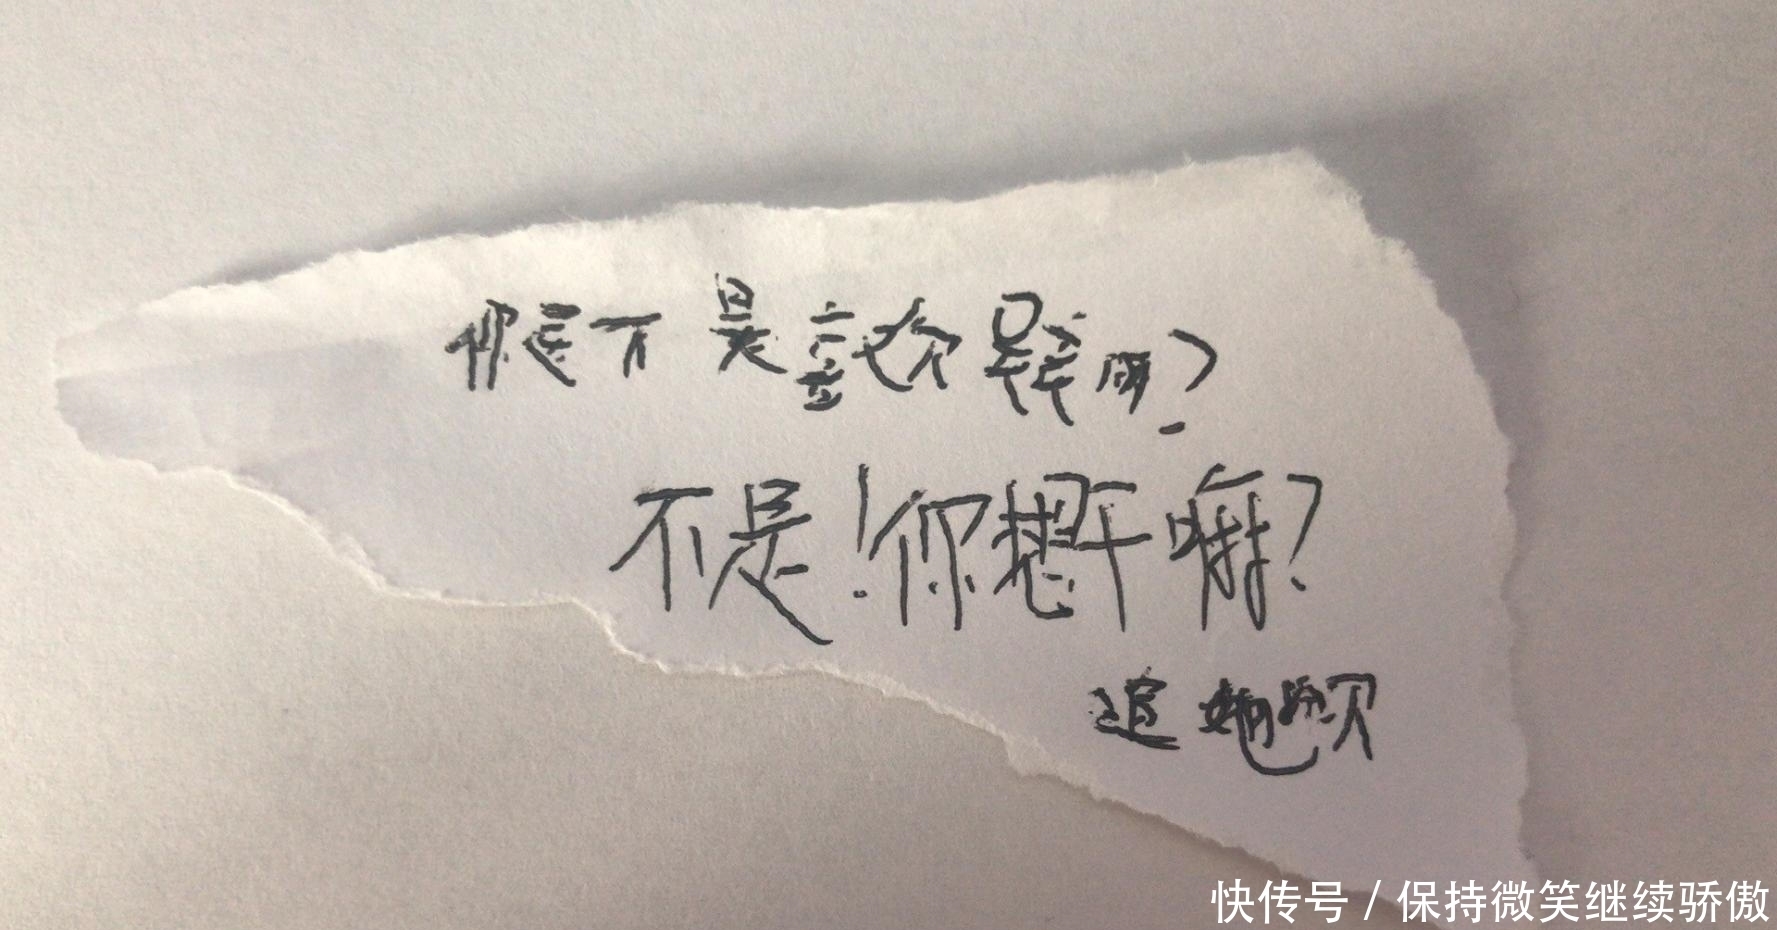 你是不是喜欢晨晨啊？
不是！你想干嘛？
追她呗
快传号 / 保持微笑继续骄傲